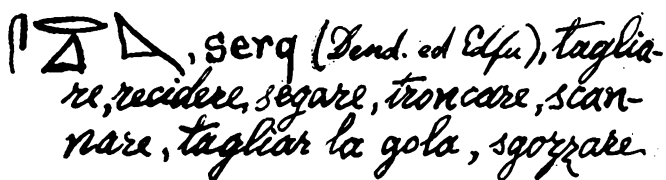 𓋴𓎼𓈎, serq (Dend. ed Edfu), taglia-
re, recidere, segare, troncare, scan-
nare, tagliar la gola, sgozzare